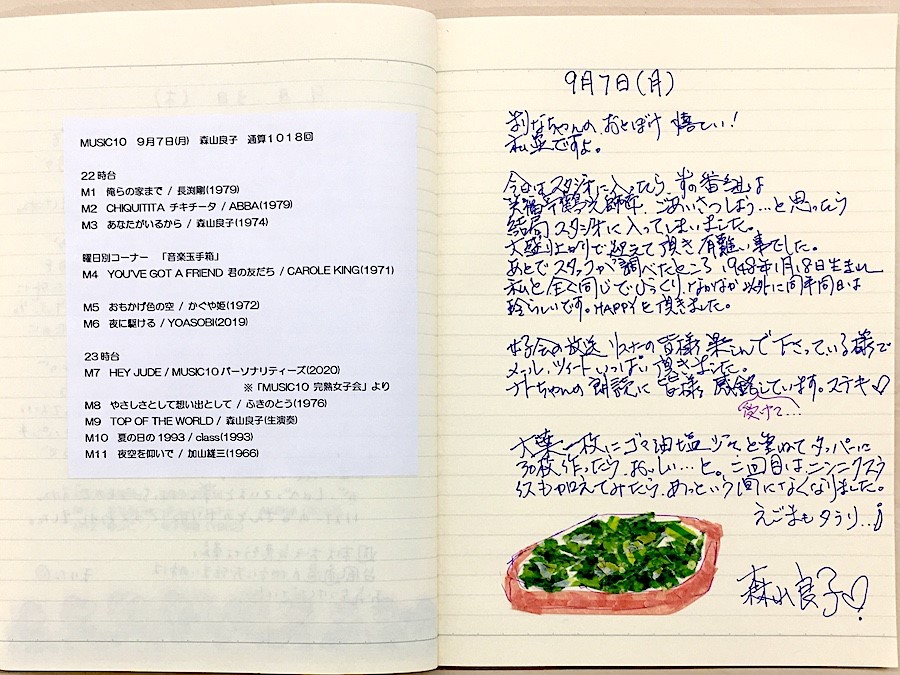 MUSIC10 9月7日(月) 森山良子 通算1018回
22時台
M1 俺らの家まで / 長渕剛(1979)
M2 CHIQUITITA チキチータ / ABBA(1979)
M3 あなたがいるから / 森山良子(1974)
曜日別コーナー 「音楽玉手箱」
M4 YOU'VE GOT A FRIEND 君の友だち / CAROLE KING(1971)
M5 おもかげ色の空 / かぐや姫(1972)
M6 夜に駆ける / YOASOBI(2019)
23時台
M7 HEY JUDE / MUSIC10パーソナリティーズ(2020)
※「MUSIC10 完熟女子会」より
M8 やさしさとして想い出として / ふきのとう(1976)
M9 TOP OF THE WORLD / 森山良子(生演奏)
M10 夏の日の1993 / class(1993)
M11 夜空を仰いで / 加山雄三(1966)
9月7日(月)
ちゃんの おとぼけ 嬉しい!
ですよ。
今日はスタジオに入ったら、前の番組は
笑福亭鶴光師匠、ごあいさつしよう…と思ったら
結局スタジオに入ってしまいました。
大盛り上がりで迎えて頂き有難い事でした。
あとでスタッフが調べたところ 1948年1月18日生まれ
私と全く同じでびっくり、なかなか以外に同年同日は
珍らしいです。HAPPYを頂きました。
女子会の放送 リスナーの皆様楽しんで下さっている様で
メール、ツイートいっぱい頂きました。
ナトちゃんの朗読に 皆様 感銘しています。ステキ♡
受けて…
大葉一枚にゴマ油塩ジャッと重ねてタッパーに
30枚作ったら、おいしい…と。二回目はニンニクスラ
イスも加えてみたら、あっという間になくなりました。
えごまもよろし…!
森山良子♡